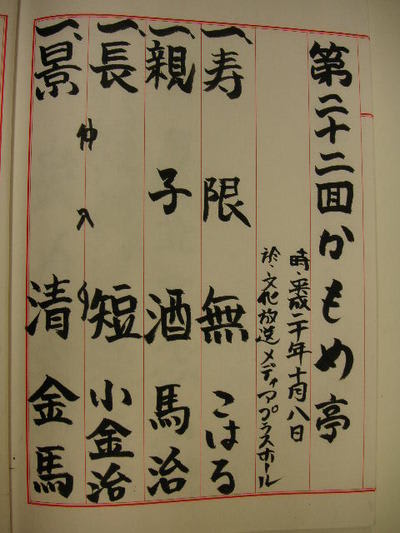 第二十二回かもめ亭
時、平成二十年十月八日
於、文化放送メディアプラスホール
一、寿限無 こはる
一、親子酒 馬治
一、長短 小金治
仲入り
一、景清 金馬